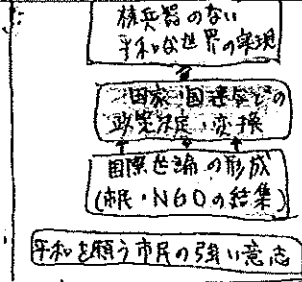 核兵器のない
平和な世界の実現
国家・国連などの
政策決定・変換
国際世論の形成
(市民・NGOの結集)
平和を願う市民の強い意志